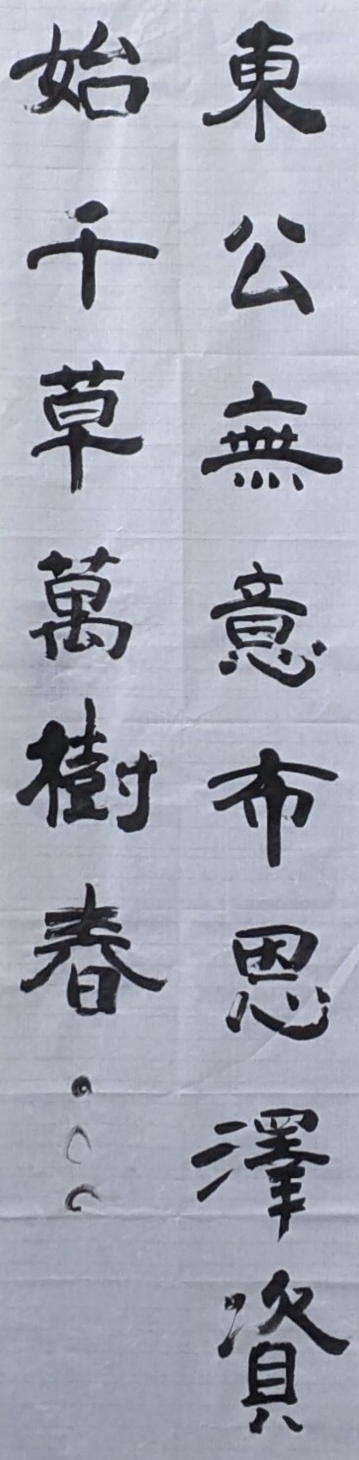 東公無意布恩澤資
始千草萬樹春